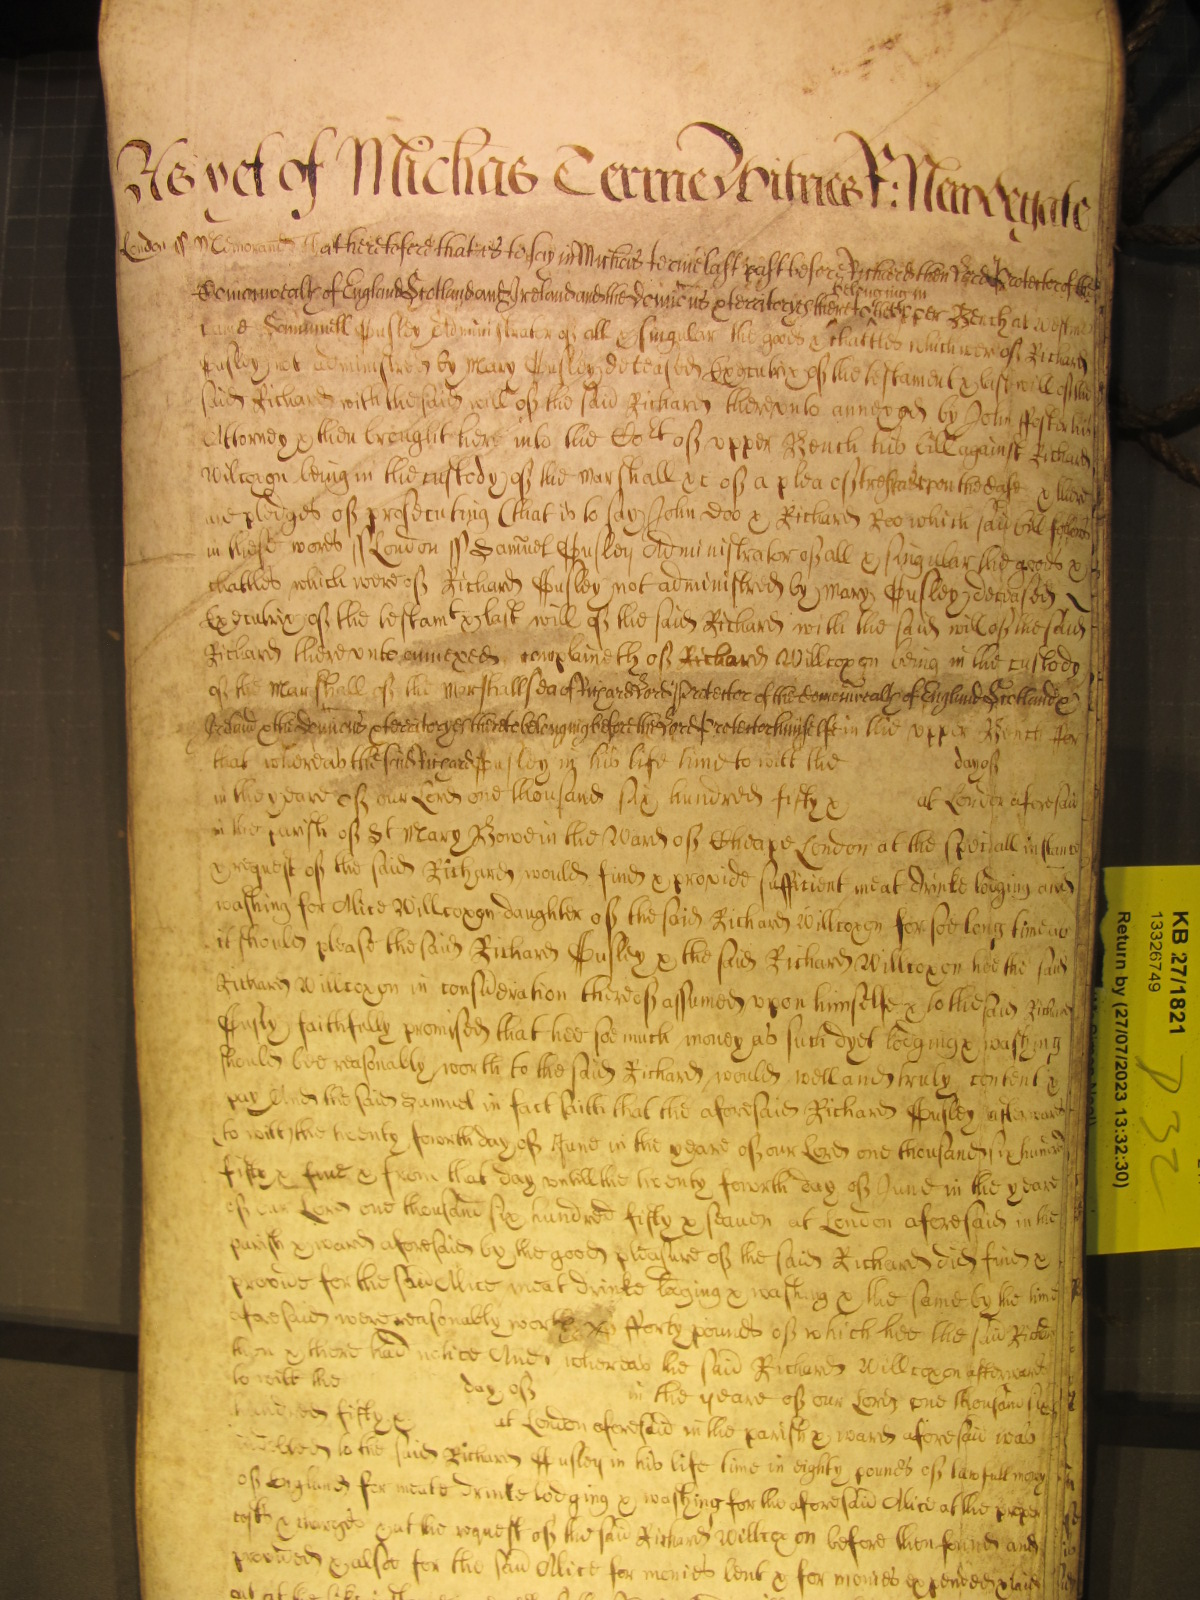 As yet of Michas Terme Witnes R: Newdegate
London ss Memorand that heretofore that is to say in Michas terme last past before Richard then Lord Protector of the
Comonwealth of England Scotland and Ireland and the Dominions & territoryes thereto belonging in the upper Bench at Westmr
came Samuell Pusley Administrator of all & singular the goods & chattles which were of Richard
Pusley not administred by Mary Pusley deceased Executrix of the testament & last will of the
said Richard with the said will of the said Richard thereunto annexed by John Foster his
Attorney & then brought here into the Cort of upper Bench his bill against Richard
Wilcoxon being in the custody of the Marshall &c of a plea of trespas upon the Case & there
are pledges of prosecuting (that is to say) John Doo & Richard Roo which said bill followes
in these words ss London ss Samuel Pusley Administrator of all & singular the goods &
chattles which were of Richard Pusley not administred by Mary Pusley deceased
Executrix of the testamt & last will of the said Richard with the said will of the said
Richard thereunto annexed complaineth of Richard Willcoxon being in the custody
of the Marshall of the Marshallsea of Richard Lord Protector of the Comonwealth of England Scotland &
Ireland & the Dominions & territoryes thereto belonging before the Lord Protector himselfe in the upper Bench For
that whereas the said Richard Pusley in his life time to witt the day of
in the yeare of our Lord one thousand six hundred fifty & at London aforesaid
in the parish of St Mary Bowe in the Ward of Cheape London at the speciall instance
& request of the said Richard would find & provide sufficient meat drinke lodging and
washing for Alice Willcoxon daughter of the said Richard Willcoxon for soe long time as
it should please the said Richard Pusley & the said Richard Willcoxon hee the said
Richard Willcoxon in consideration thereof assumed upon himselfe & to the said Richard
Pusly faithfully promised that hee soe much money as such dyet lodging & washing
should bee reasonably worth to the said Richard would well and truly content &
pay And the said Samuel in fact saith that the aforesaid Richard Pusley afterwards
to witt the twenty fowrth day of June in the yeare of our Lord one thousand six hundred
fifty & five & from that day untill the twenty fowrth day of June in the yeare
of our Lord one thousand six hundred fifty & seaven at London aforesaid in the
parish & ward aforesaid by the good pleasure of the said Richard did find &
provide for the said Alice meat drinke lodging & washing & the same by the time
aforesaid were reasonably worth fforty pounds of which hee the said Richard
then & there had notice And whereas the said Richard Willcoxon afterwards
to witt the day of in the yeare of our Lord one thousand six
hundred fifty & at London aforesaid in the parish & ward aforesaid was
indebted to the said Richard Pusley in his life time in eighty pounds of lawfull money
of England for meate drinke lodging & washing for the aforesaid Alice at the proper
costs & charges & at the request of the said Richard Willcoxon before then found and
provided & alsoe for the said Alice for monies lent & for monies expended
KB 27/1821
13326749
Return by (27/07/2023 13:32:30)
P 32